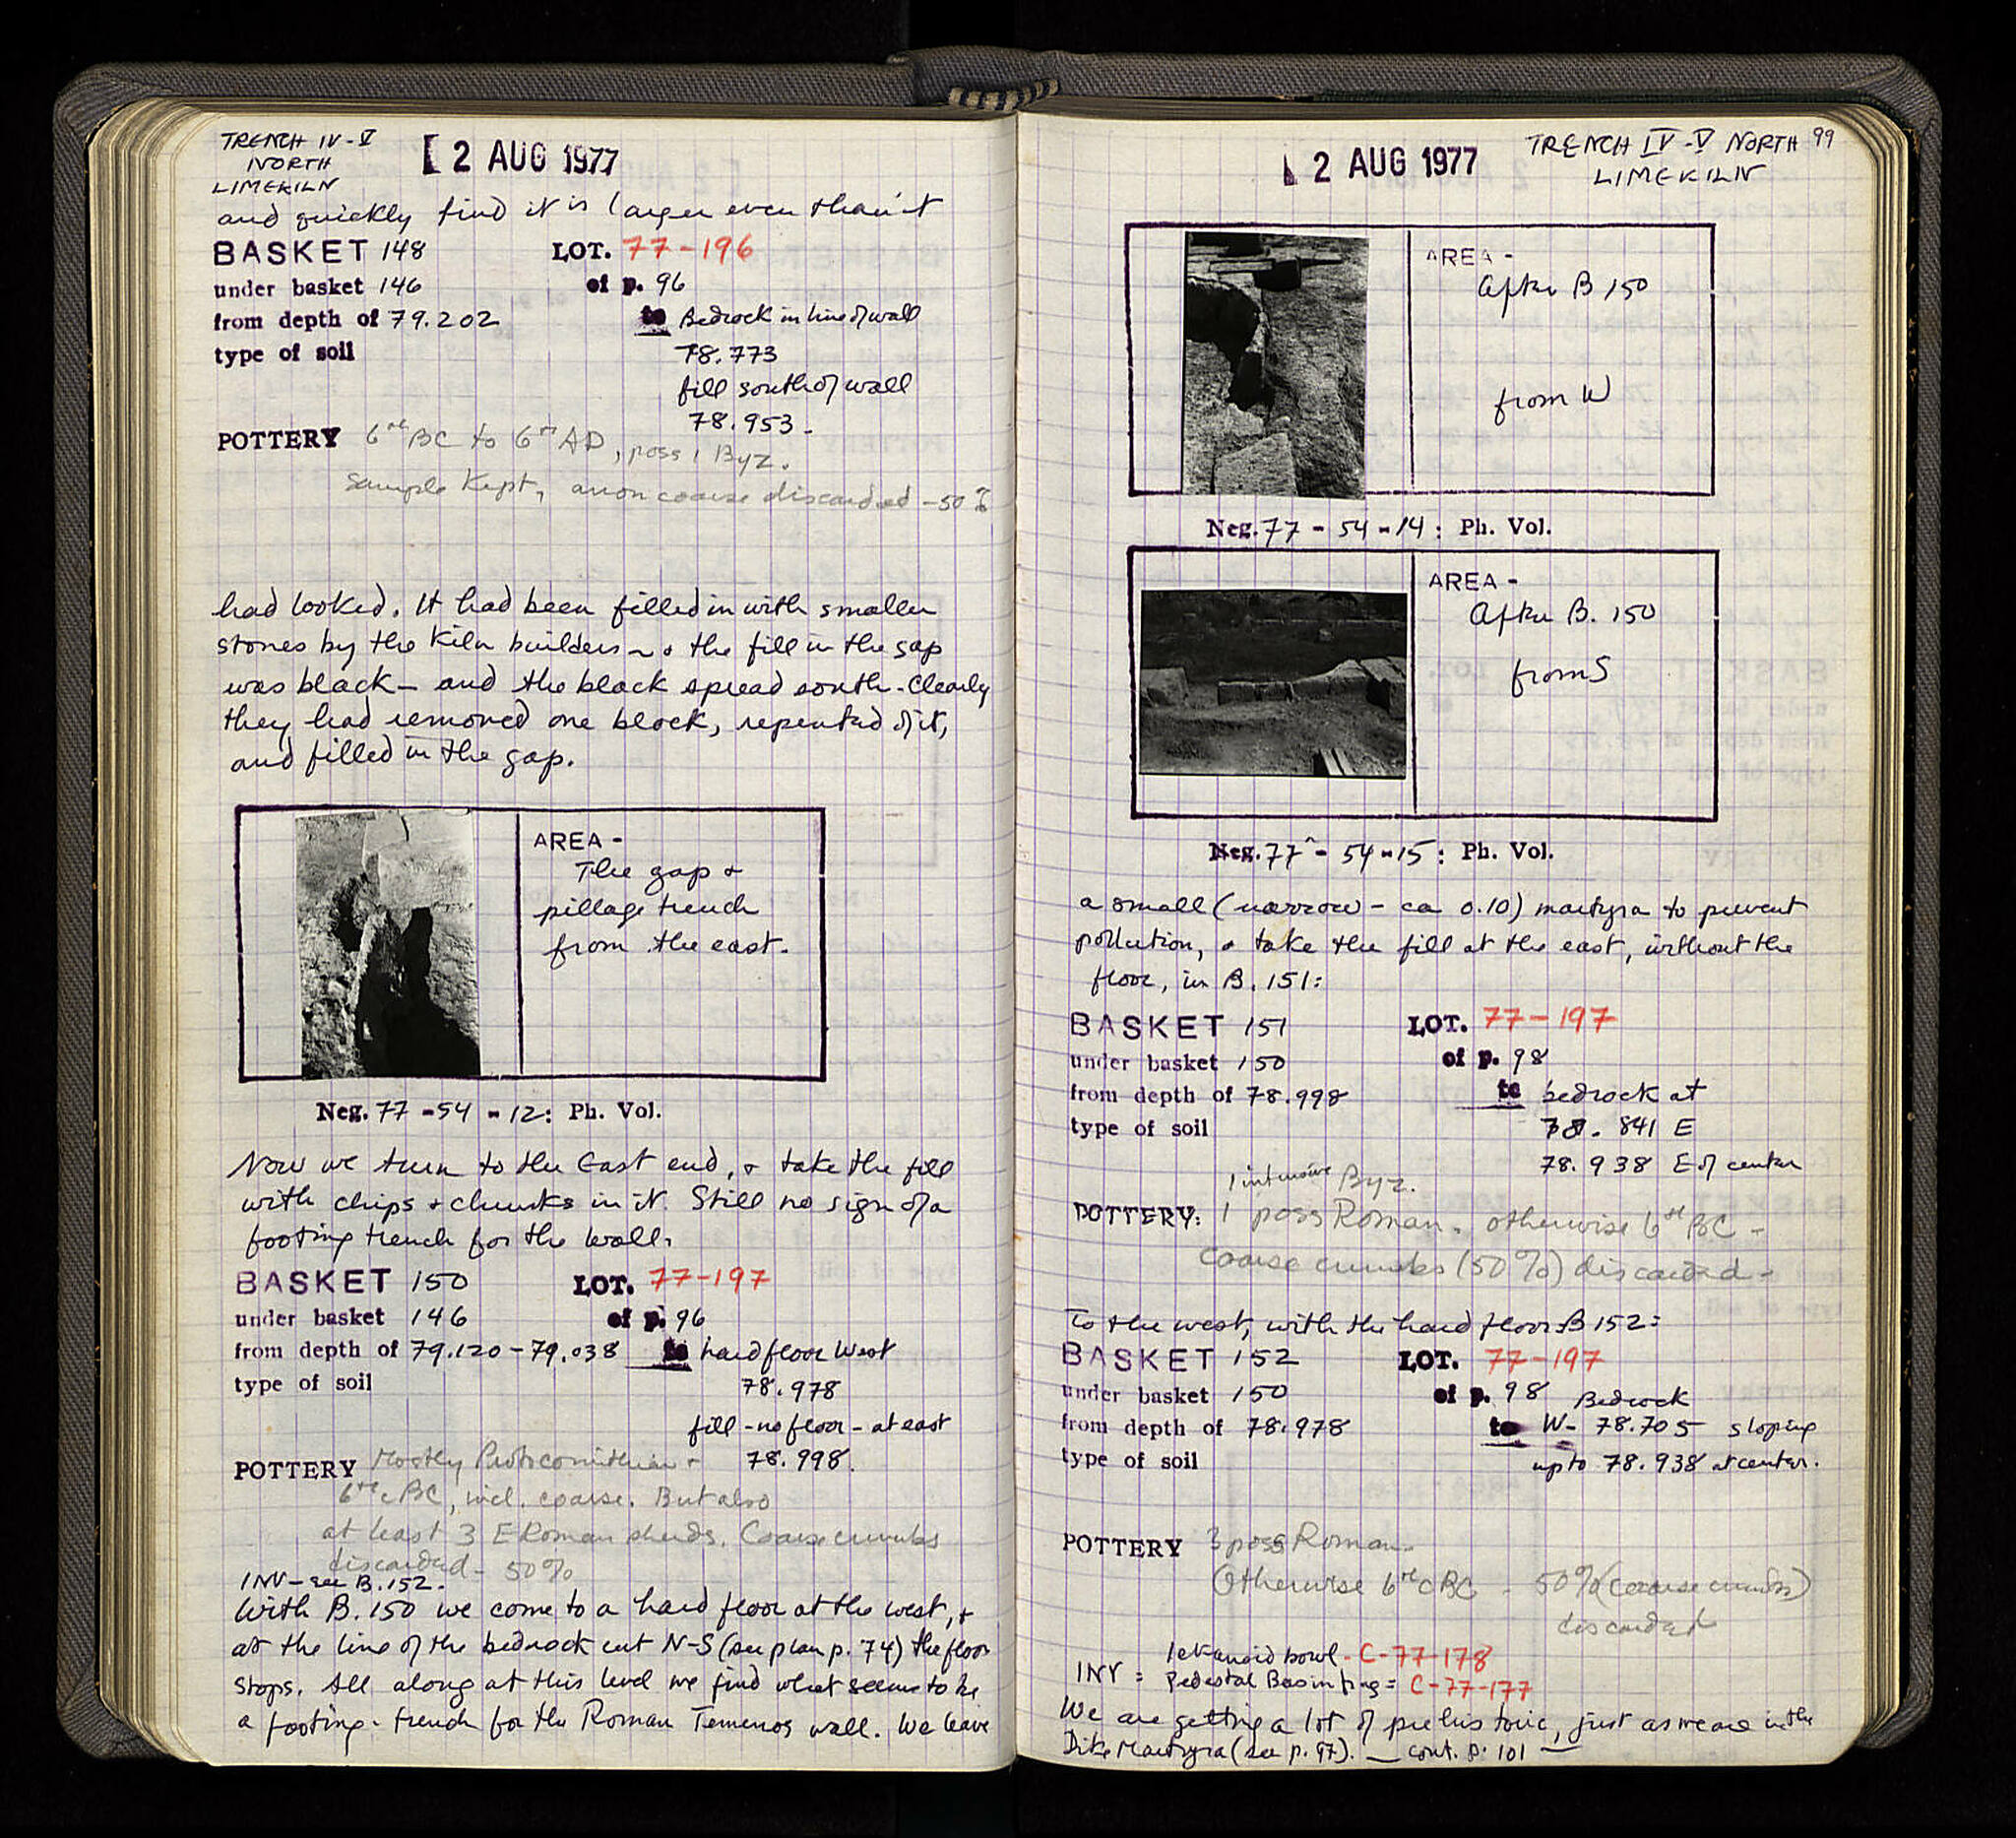 TRENCH IV-V
NORTH
LIMEKILN
[2 AUG 1977
and quickly find it is larger even than it
BASKET 148 LOT. 77-196
under basket 146 of p. 96
from depth of 79.202 to Bedrock in line of wall
type of soil 78.773
fill south of wall
78.953-
POTTERY 6th BC to 6th AD, poss 1 Byz.
Sample Kept, anon coarse discarded -50%
had looked. It had been filled in with smaller
stones by the Kiln builders ~ & the fill in the gap
was black - and the black spread south. Clearly
they had removed one block, repented of it,
and filled in the gap.
AREA -
The gap &
pillage trench
from the east.
Neg. 77-54-12: Ph. Vol.
Now we turn to the East end, & take the fill
with chips & chunks in it. Still no sign of a
footing trench for the wall.
BASKET 150 LOT. 77-197
under basket 146 of p. 96
from depth of 79.120-79.038 to hard floor West
type of soil 78.978
fill - no floor - at east
78.998.
POTTERY Mostly Protocorinthian &
6th c BC, incl. coarse. But also
at least 3 E Roman sherds. Coarse crumbs
discarded - 50%
INV - see B. 152.
With B. 150 we come to a hard floor at the west, &
at the line of the bedrock cut N-S (see plan p. 74) the floor
stops. All along at this level we find what seems to be
a footing-trench for the Roman Temenos wall. We leave
2 AUG 1977
TRENCH IV-V NORTH 99
LIMEKILN
AREA -
After B 150
from W
Neg. 77-54-14: Ph. Vol.
AREA -
After B. 150
from S
Neg. 77-54-15: Ph. Vol.
a small (narrow - ca 0.10) martyra to prevent
pollution, & take the fill at the east, without the
floor, in B. 151:
BASKET 151 LOT. 77-197
under basket 150 of p. 98
from depth of 78.998 to bedrock at
type of soil 78.841 E
78.938 E of center
1 intrusive Byz.
POTTERY: 1 poss Roman. otherwise 6th BC -
Coarse crumbs (50%) discarded -
To the west, with the hard floor B 152:
BASKET 152 LOT. 77-197
under basket 150 of p. 98 Bedrock
from depth of 78.978 to W- 78.705 sloping
type of soil up to 78.938 at center.
POTTERY 3 poss Roman.
Otherwise 6th c BC - 50% (coarse crumbs)
discarded
lekanoid bowl - C-77-178
INV = Pedestal Basin frag = C-77-177
We are getting a lot of prehistoric, just as we are in the
Dike Martyra (see p. 97). — cont. p. 101 —